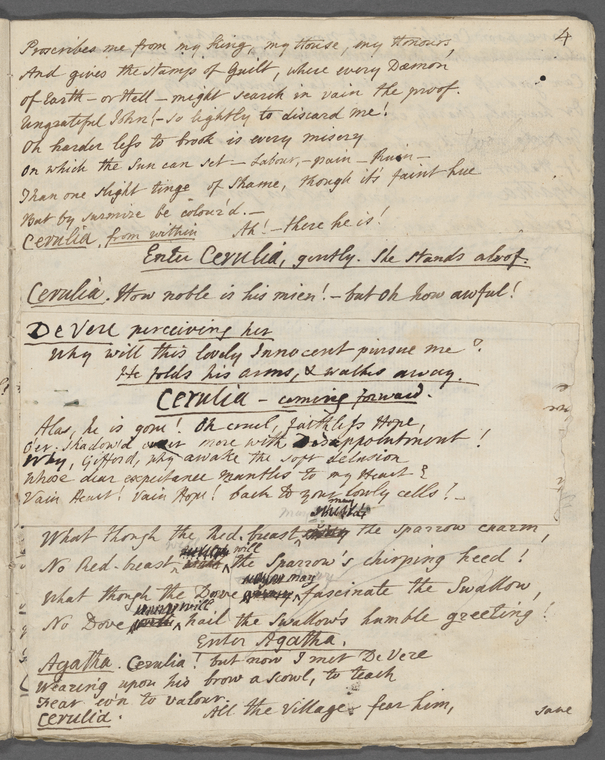 4
Proscribes me from my King, my House, my Honours,
And gives the stamps of Guilt, where every Dæmon
of Earth – or Hell – might search in vain the proof.
Ungrateful John! – so lightly to discard me!
Oh harder less to brook is every misery
On which the Sun can set – Labour, – pain – Ruin –
Than one slight tinge of Shame, though it's faint hue
But by surmize be colour'd. –
Cerulia, from within Ah! – there he is!
Enter Cerulia, gently. She stands aloof.
Cerulia. How noble is his mien! – but Oh how awful!
De Vere perceiving her
Why will this lovely Innocent pursue me?
He folds his arms, & walks away.
Cerulia – coming forward.
Alas, he is gone! Oh cruel, faithless Hope,
O'er-shadow'd more with Disappointment!
Why, Gifford, why awake the soft delusion
Whose dear expectance mantles to my Heart?
Vain Heart! Vain Hope! back to your lowly cells! –
may
What though the Red-breast the Sparrow charm,
will
No Red-breast the Sparrow's chirping heed!
may
What though the Dove fascinate the Swallow,
will
No Dove hail the Swallow's humble greeting!
Enter Agatha.
Agatha. Cerulia! but now I met De Vere
Wearing upon his brow a scowl, to teach
Fear ev'n to valour.
Cerulia. All the Village fear him,
save